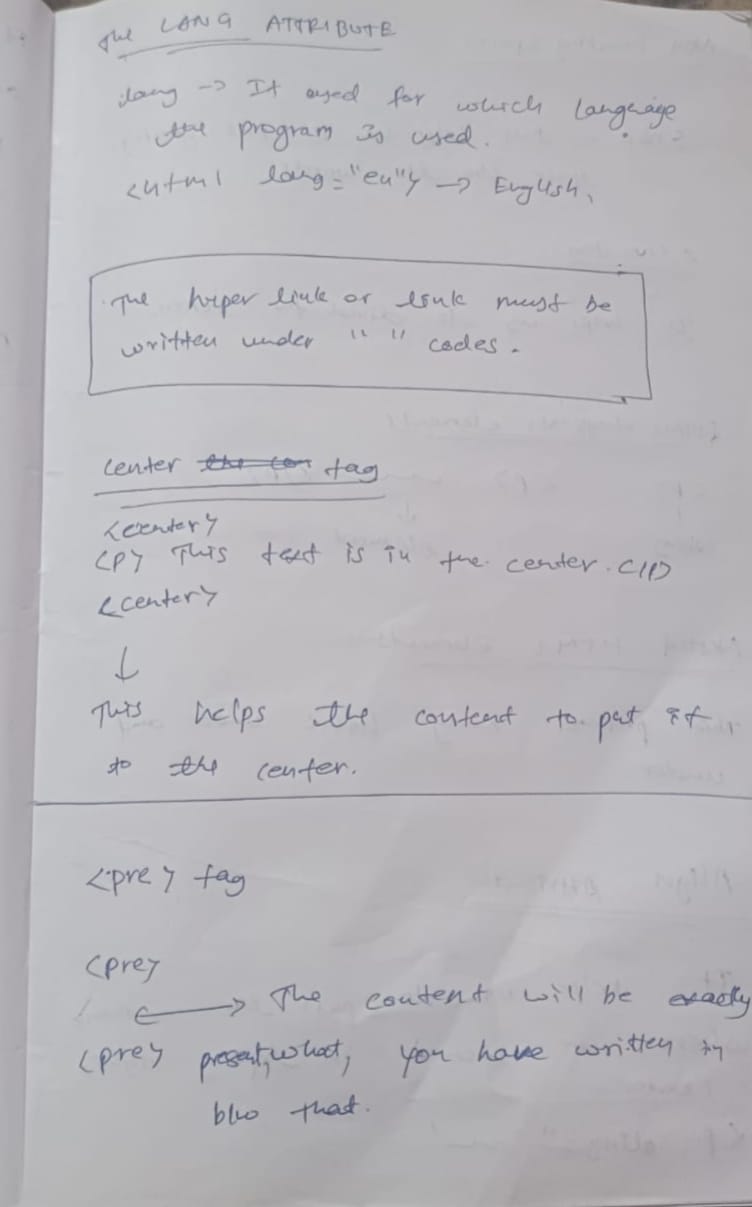 The LANG ATTRIBUTE
lang -> It used for which language
the program is used.
<html lang="en"> -> English.
The hiper link or link must be
written under " " codes.
center tag
<center>
<p> This text is in the center. </p>
<center>
↓
This helps the content to put it
to the center.
<pre> tag
<pre>
<-> The content will be exactly
<pre> present, what, you have written in
b/w that.